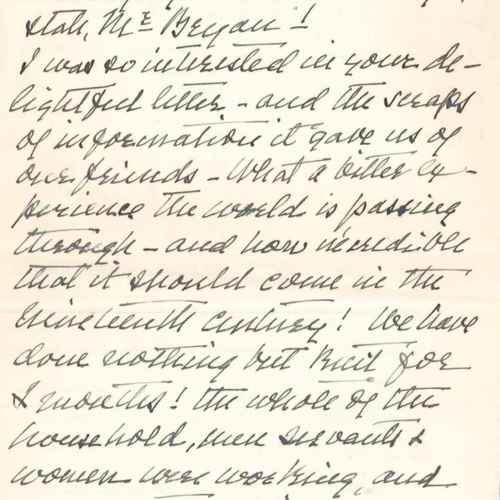 state, Mr Bryan!
I was so interested in your de-
lightful letter - and the scraps
of information it gave us of
our friends - What a bitter ex-
perience the world is passing
through - and how incredible
that it should come in the
nineteenth century! We have
done nothing but knit for
months! the whole of the
household, men servants &
women were working, and